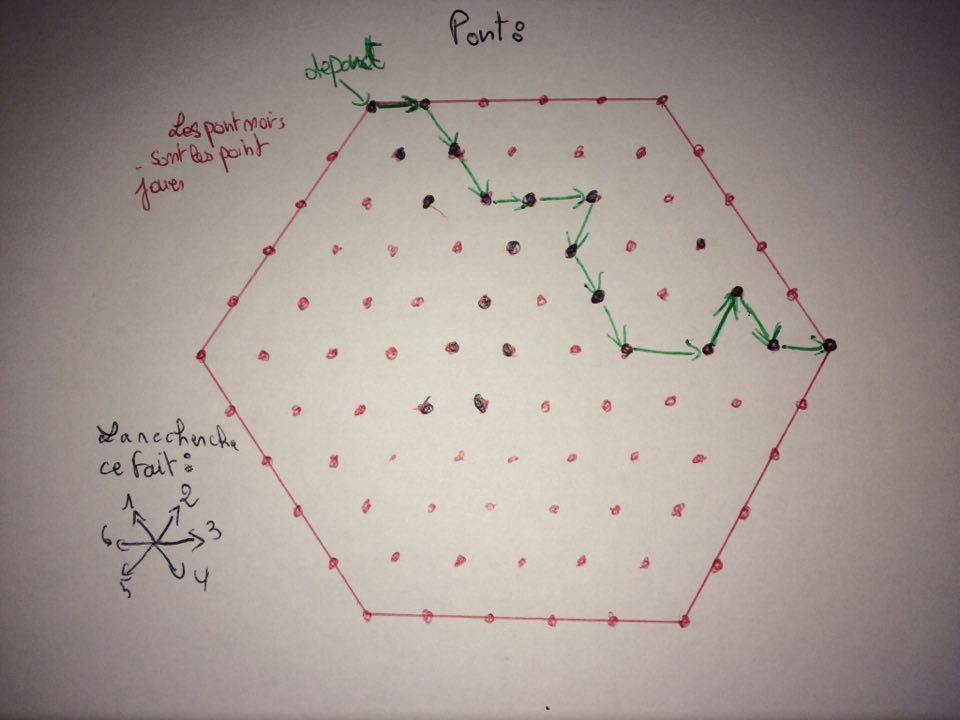 Pont:
depart
Les pont noirs
sont les point
jouer
La recherche
ce fait:
1 2
6 3
5 4